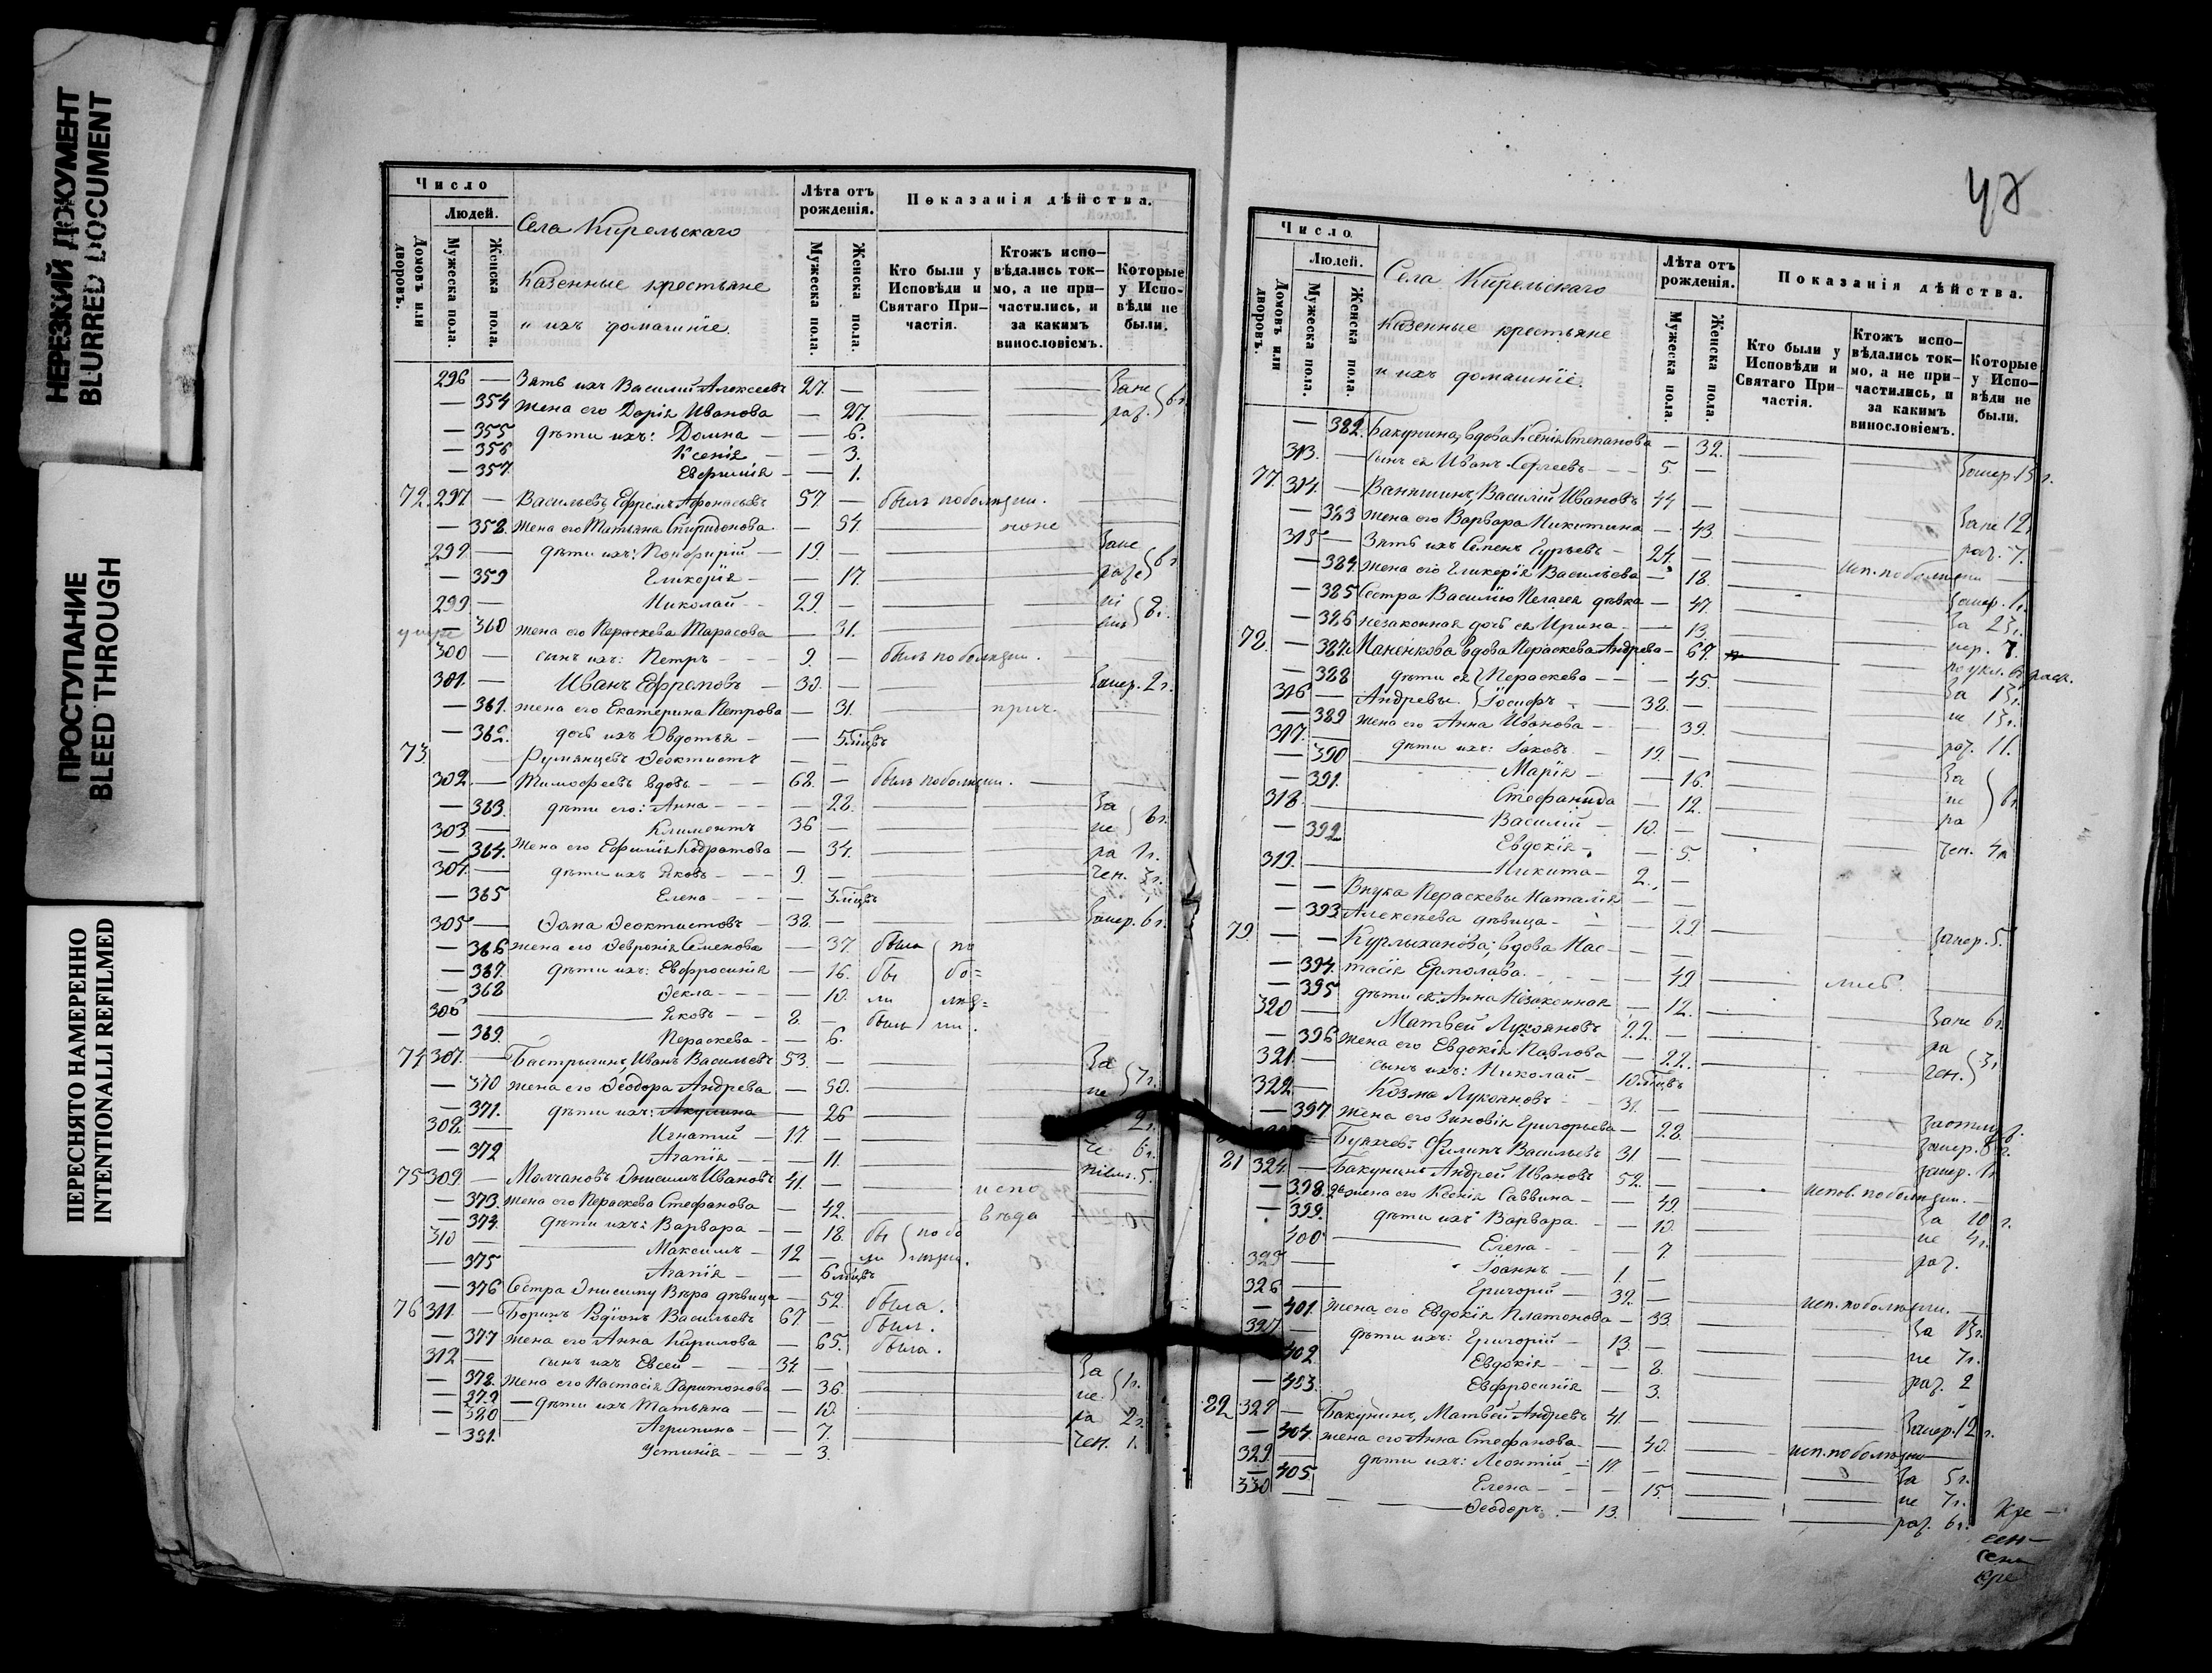 НЕРЕЗКИЙ ДОКУМЕНТ
BLURRED DOCUMENT
ПРОСТУПАНИЕ
BLEED THROUGH
ПЕРЕСНЯТО НАМЕРЕННО
INTENTIONALLI REFILMED
Число
Людей.
Домовъ или дворовъ.
Мужеска пола.
Женска пола.
Села Кирельскаго
Казенные крестьяне
и ихъ домашніе.
Лѣта отъ рожденія.
Мужеска пола.
Женска пола.
Показанія дѣйства.
Кто были у Исповѣди и Святаго Причастія.
Ктожъ исповѣдались токмо, а не причастились, и за какимъ винословіемъ.
Которые у Исповѣди не были.
296 — Зять ихъ Василій Алексеевъ 27. —
— 354 жена его Дарія Иванова — 27.
— 355 дѣти ихъ: Домна — 6.
— 356 Ксенія — 3.
— 357. Евфимія — 1.
72. 297 — Васильевъ Ефремъ Афонасьевъ 57 — былъ по болѣзни.
— 358. жена его Татьяна Спиридонова — 54
299 — дѣти ихъ: 19. —
— 359 Гликерія — 17.
299 — Николай 29. —
— 360 жена его Пераскева Тарасова — 31.
300 — сынъ ихъ: Петръ 9. — былъ по болѣзни.
301. — Иванъ Ефремовъ 30. — Замер. 2 г.
— 361. жена его Екатерина Петрова — 31. прич.
— 362. дочь ихъ Овдотья — 5 мѣцвъ
73. Румянцевъ Феоктистъ
302. — Тимофеевъ вдовъ 62. — былъ по болѣзни.
— 363. дѣти его: Анна — 22. За
303 — Климентъ 36 — не 6 г.
— 364. жена его — 34. ра 1 г.
304. — дѣти ихъ Яковъ 9. — чен. 3 г.
— 365 Елена — 3 мѣцвъ
305 — Фома Феоктистовъ 38. — Замер. 6 г.
— 366 жена его Февронія Семенова — 37. была по
— 367. дѣти ихъ: Евфросинія — 16. бы бо=
— 368 Фекла — 10. ли лѣз=
306 Яковъ 8. — былъ ни.
— 369. Пераскева — 6.
74 307. — Бастрыгинъ, Иванъ Васильевъ 53. — За
— 370 жена его Феодора Андрева — 50. не 7 г.
— 371. дѣти ихъ: Акулина — 26
308. — Игнатий 17. — 2 г.
— 372 Агапія — 11. 6 г.
75 309. — Молчановъ Онисимъ Ивановъ 41. — испо
— 373. жена его Пераскева Стефанова — 42. вѣда
— 374. дѣти ихъ: Варвара — 18. бы по бо
310 — Максимъ 12 — ли лѣзни.
— 375 Агапія — 6 мѣцвъ
— 376 Сестра Онисиму Вѣра дѣвица — 52. была.
76 311. — Боринъ Родіонъ Васильевъ 67. — былъ.
— 377 жена его Анна Кирилова — 65. была.
312 — сынъ ихъ Евсей 34. — За
— 378. жена его Настасія Харитонова — 36. не 1 г.
— 379 — дѣти ихъ Татьяна — 10. ра 2 г.
— 380 Агрипина — 7. чен. 1.
— 381. Устинія — 3.
47
Число
Людей.
Домовъ или дворовъ.
Мужеска пола.
Женска пола.
Села Кирельскаго
Казенные крестьяне
и ихъ домашніе.
Лѣта отъ рожденія.
Мужеска пола.
Женска пола.
Показанія дѣйства.
Кто были у Исповѣди и Святаго Причастія.
Ктожъ исповѣдались токмо, а не причастились, и за какимъ винословіемъ.
Которые у Исповѣди не были.
— 382. Бакунина, вдова Ксенія Степанова — 32.
313. — сынъ ея Иванъ Сергеевъ 5. — Замер. 15 г.
77 314. — Ванишинъ, Василій Ивановъ 44 —
— 383 жена его Варвара Никитина — 43. Зане 12.
315 — Зять ихъ Семенъ Гурьевъ 24. — раз. 7.
— 384. жена его Гликерія Васильева — 18. исп. по болѣзни
— 385 Сестра Василію Пелагея дѣвка — 47. Замер. 1 г.
— 386 незаконная дочь ея Ирина — 13. За 23 г.
78. — 387. Маненкова вдова Пераскева Андрева — 67. нер. 7.
— 388 дѣти ея Пераскева — 45. по укл. въ раск.
316 — Андревы Іосифъ 38. — За 13 г.
— 389 жена его Анна Иванова — 39. не 13 г.
317. — дѣти ихъ: Іаковъ 19. — раз. 11.
— 390 Марія — 16. За
— 391. Стефанида — 12. не 6 г.
318. Василій 10. — ра
— 392 Евдокія — 5. чен. 4 г.
319. Никита 2. —
— — Внука Пераскевы Наталія
— 393 Алексѣева дѣвица — 29 Замер. 5.
79. — — Курлыханова, вдова Нас-
— 394. тасія Ермолава. — 49
— 395 дѣти ея: Анна Незаконная — 12.
320 — Матвей Лукояновъ 22. — Зане 6 г.
— 396 жена его Евдокія Павлова — 22. ра
321. — сынъ ихъ: Николай 10 мѣцвъ чен. 3 г.
322. — Козма Лукояновъ 31. —
— 397. жена его Зиновія Григорьева — 28.
Филипъ Васильевъ 31 — Замер. 8 г.
81 324. — Бакунинъ Андрей Ивановъ 52. — Замер. 1 г.
— 398. жена его Ксенія Саввина — 49. испов. по болѣзни.
— 399. дѣти ихъ Варвара — 10. За 10 г.
400 Елена 7. не 4 г.
325 — Іоаннъ 1. — раз.
326 Григорий 32. —
— 401. жена его Евдокія Платонова — 33. исп. по болѣзни.
327 — дѣти ихъ: Григорій 13. — За 13 г.
402. Евдокія — 8. не 7 г.
— 403. Евфросинія — 3. раз. 2
82. 328 — Бакунинъ, Матвей Андревъ 41. — Замер. 12 г.
— 404. жена его Анна Стефанова — 40. исп. по болѣзни
329. — дѣти ихъ: Леонтій 17. — За 5 г.
— 405. Елена — 15. не 7 г.
330 — Феодоръ 13. раз. 6 г.